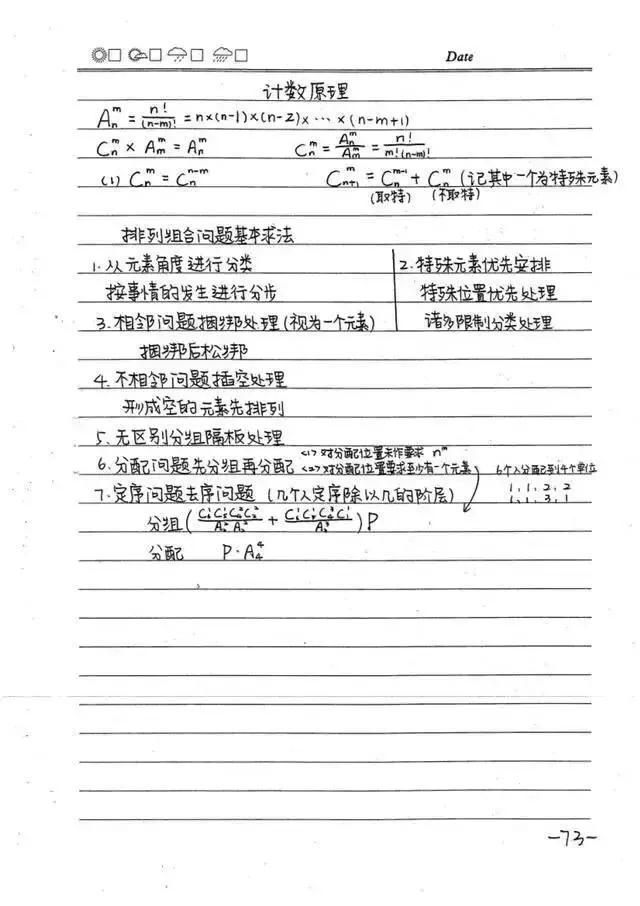 Date
计数原理
A_n^m = n!/(n-m)! = n×(n-1)×(n-2)×…×(n-m+1)
C_n^m × A_m^m = A_n^m  C_n^m = A_n^m/A_m^m = n!/(m!(n-m)!)
(1) C_n^m = C_n^{n-m}  C_{n+1}^m = C_n^{m-1} + C_n^m (记其中一个为特殊元素)
(取特) (不取特)
排列组合问题基本求法
1. 从元素角度进行分类  2. 特殊元素优先安排
按事情的发生进行分步  特殊位置优先处理
3. 相邻问题捆绑处理(视为一个元素)  诸多限制分类处理
捆绑后松绑
4. 不相邻问题插空处理
形成空的元素先排列
5. 无区别分组隔板处理
6. 分配问题先分组再分配 <1>对分配位置未作要求 n^m
<2>对分配位置要求至少有一个元素 6个人分配到4个单位
7. 定序问题去序问题 (几个人定序除以几的阶层) 1, 1, 2, 2
1, 1, 3, 1
分组 P
分配 P·A_4^4
-73-